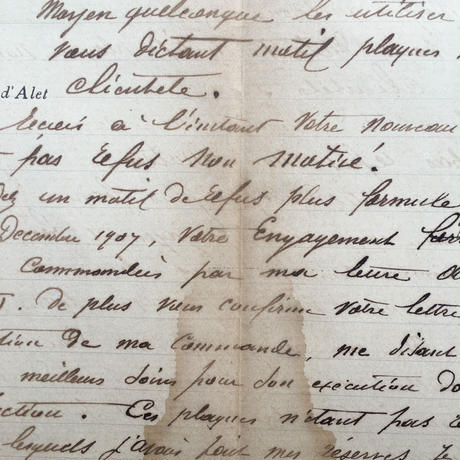 Moyen quelconque les utiliser
vous dictant motif plaques
d'Alet clientele.
Recois à l'instant votre nouveau
pas refus non motivé.
un motif de refus plus formule
Decembre 1907, votre Engagement
Commandées par ma
De plus vous confirme votre lettre
de ma Commande, me disant
meilleurs soins pour son execution
Ces plaques n'étant pas
lesquels j'avais fait mes réserves